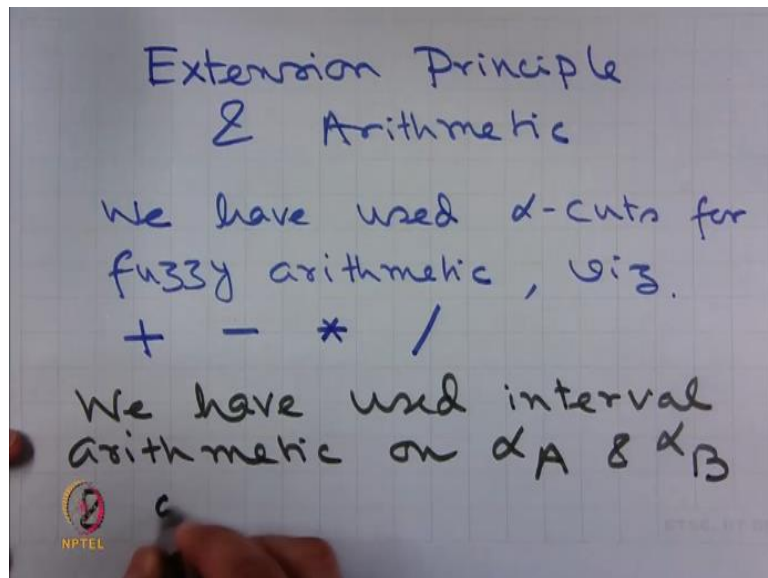 Extension Principle
& Arithmetic
We have used α-cuts for
fuzzy arithmetic, viz.
+ - * /
We have used interval
arithmetic on αA & αB
NPTEL